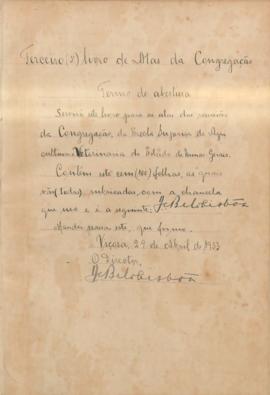 Terceiro (3º) livro de Atas da Congregação
Termo de abertura
Servirá este livro para as atas das reuniões
da Congregação, da Escola Superior de Agri
cultura e Veterinaria do Estado de Minas Gerais.
Contém este cem (100) folhas, as quais
vão (todas), rubricadas, com a chancela
que uso e é a seguinte: JCBelloLisbôa
Mandei lavrar este, que firmo.
Viçosa, 29 de Abril de 1933
O Director,
JCBelloLisbôa